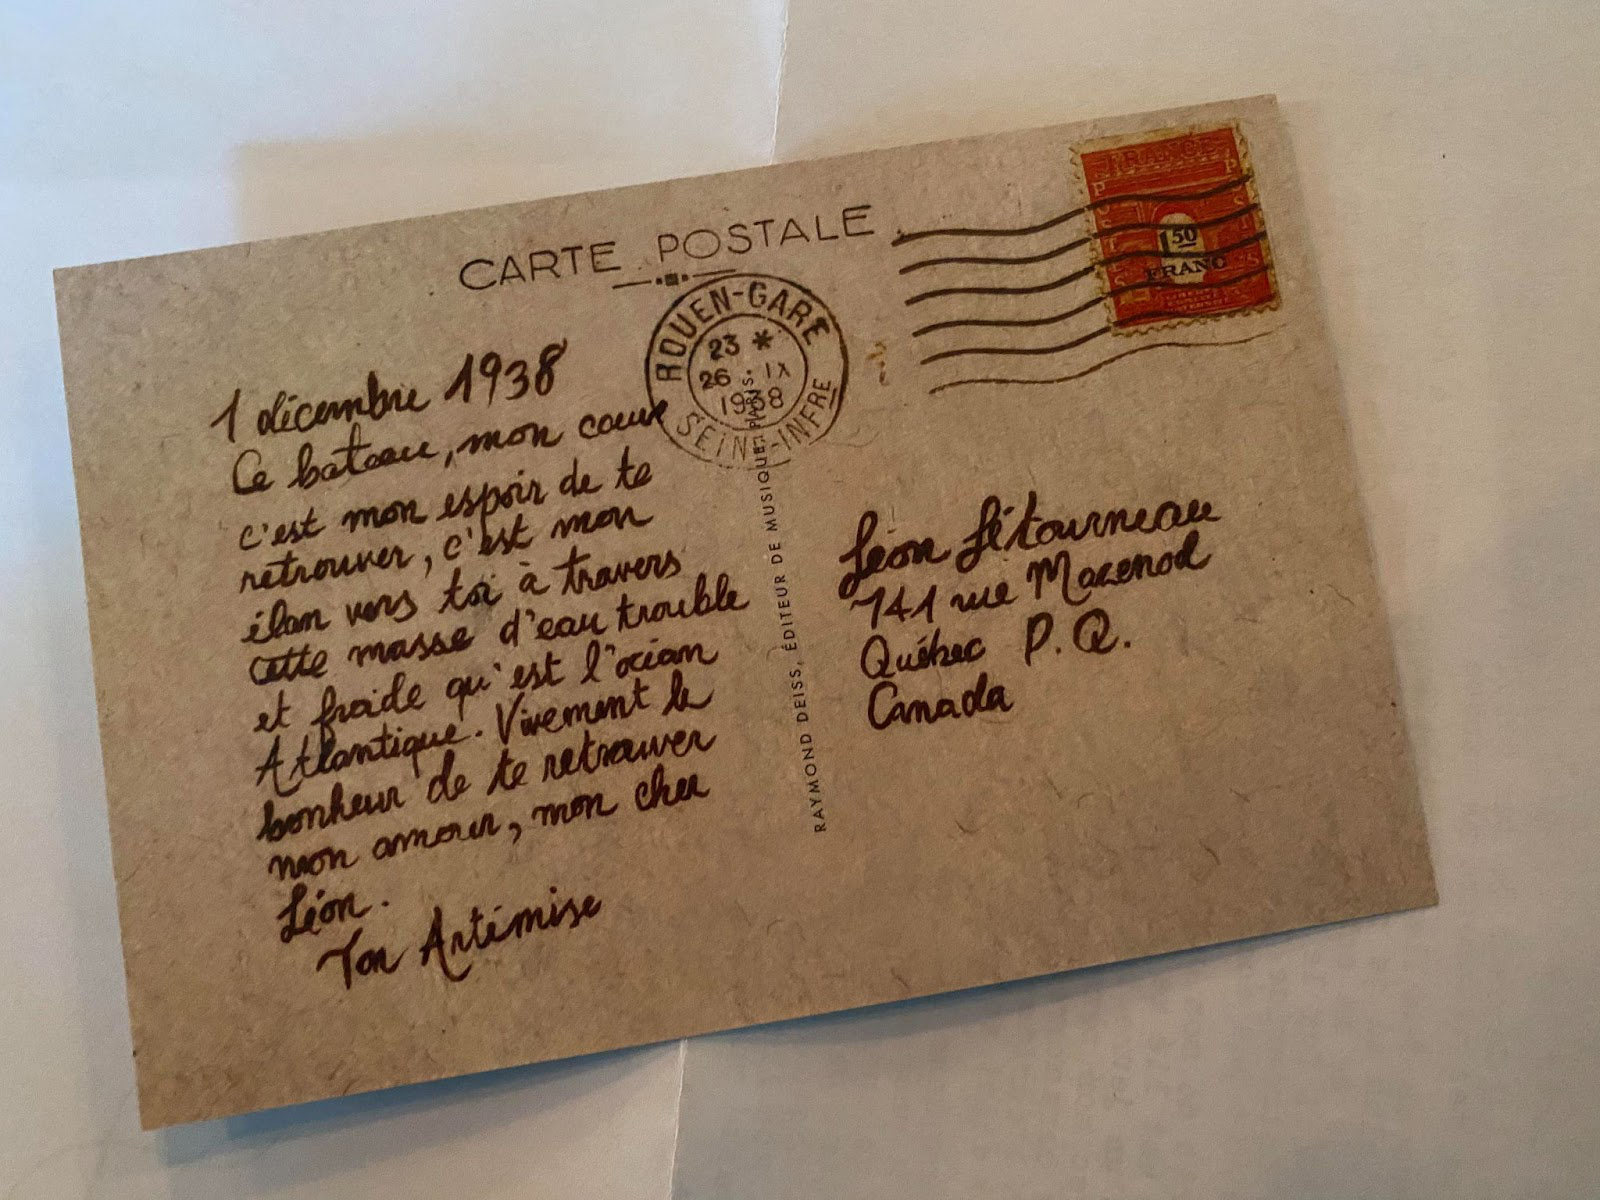 CARTE POSTALE
ROUEN-GARE
23 *
26 · IX
1938
SEINE-INFRE
FRANCE
POSTES
POSTES
1 50
FRANC
1 décembre 1938
Ce bateau, mon cœur
c'est mon espoir de te
retrouver, c'est mon
élan vers toi à travers
cette masse d'eau trouble
et froide qu'est l'océan
Atlantique. Vivement le
bonheur de te retrouver
mon amour, mon cher
Léon.
Ton Artémise
RAYMOND DEISS, ÉDITEUR DE MUSIQUE, PARIS.
Léon Létourneau
741 rue Mazenod
Québec P.Q.
Canada